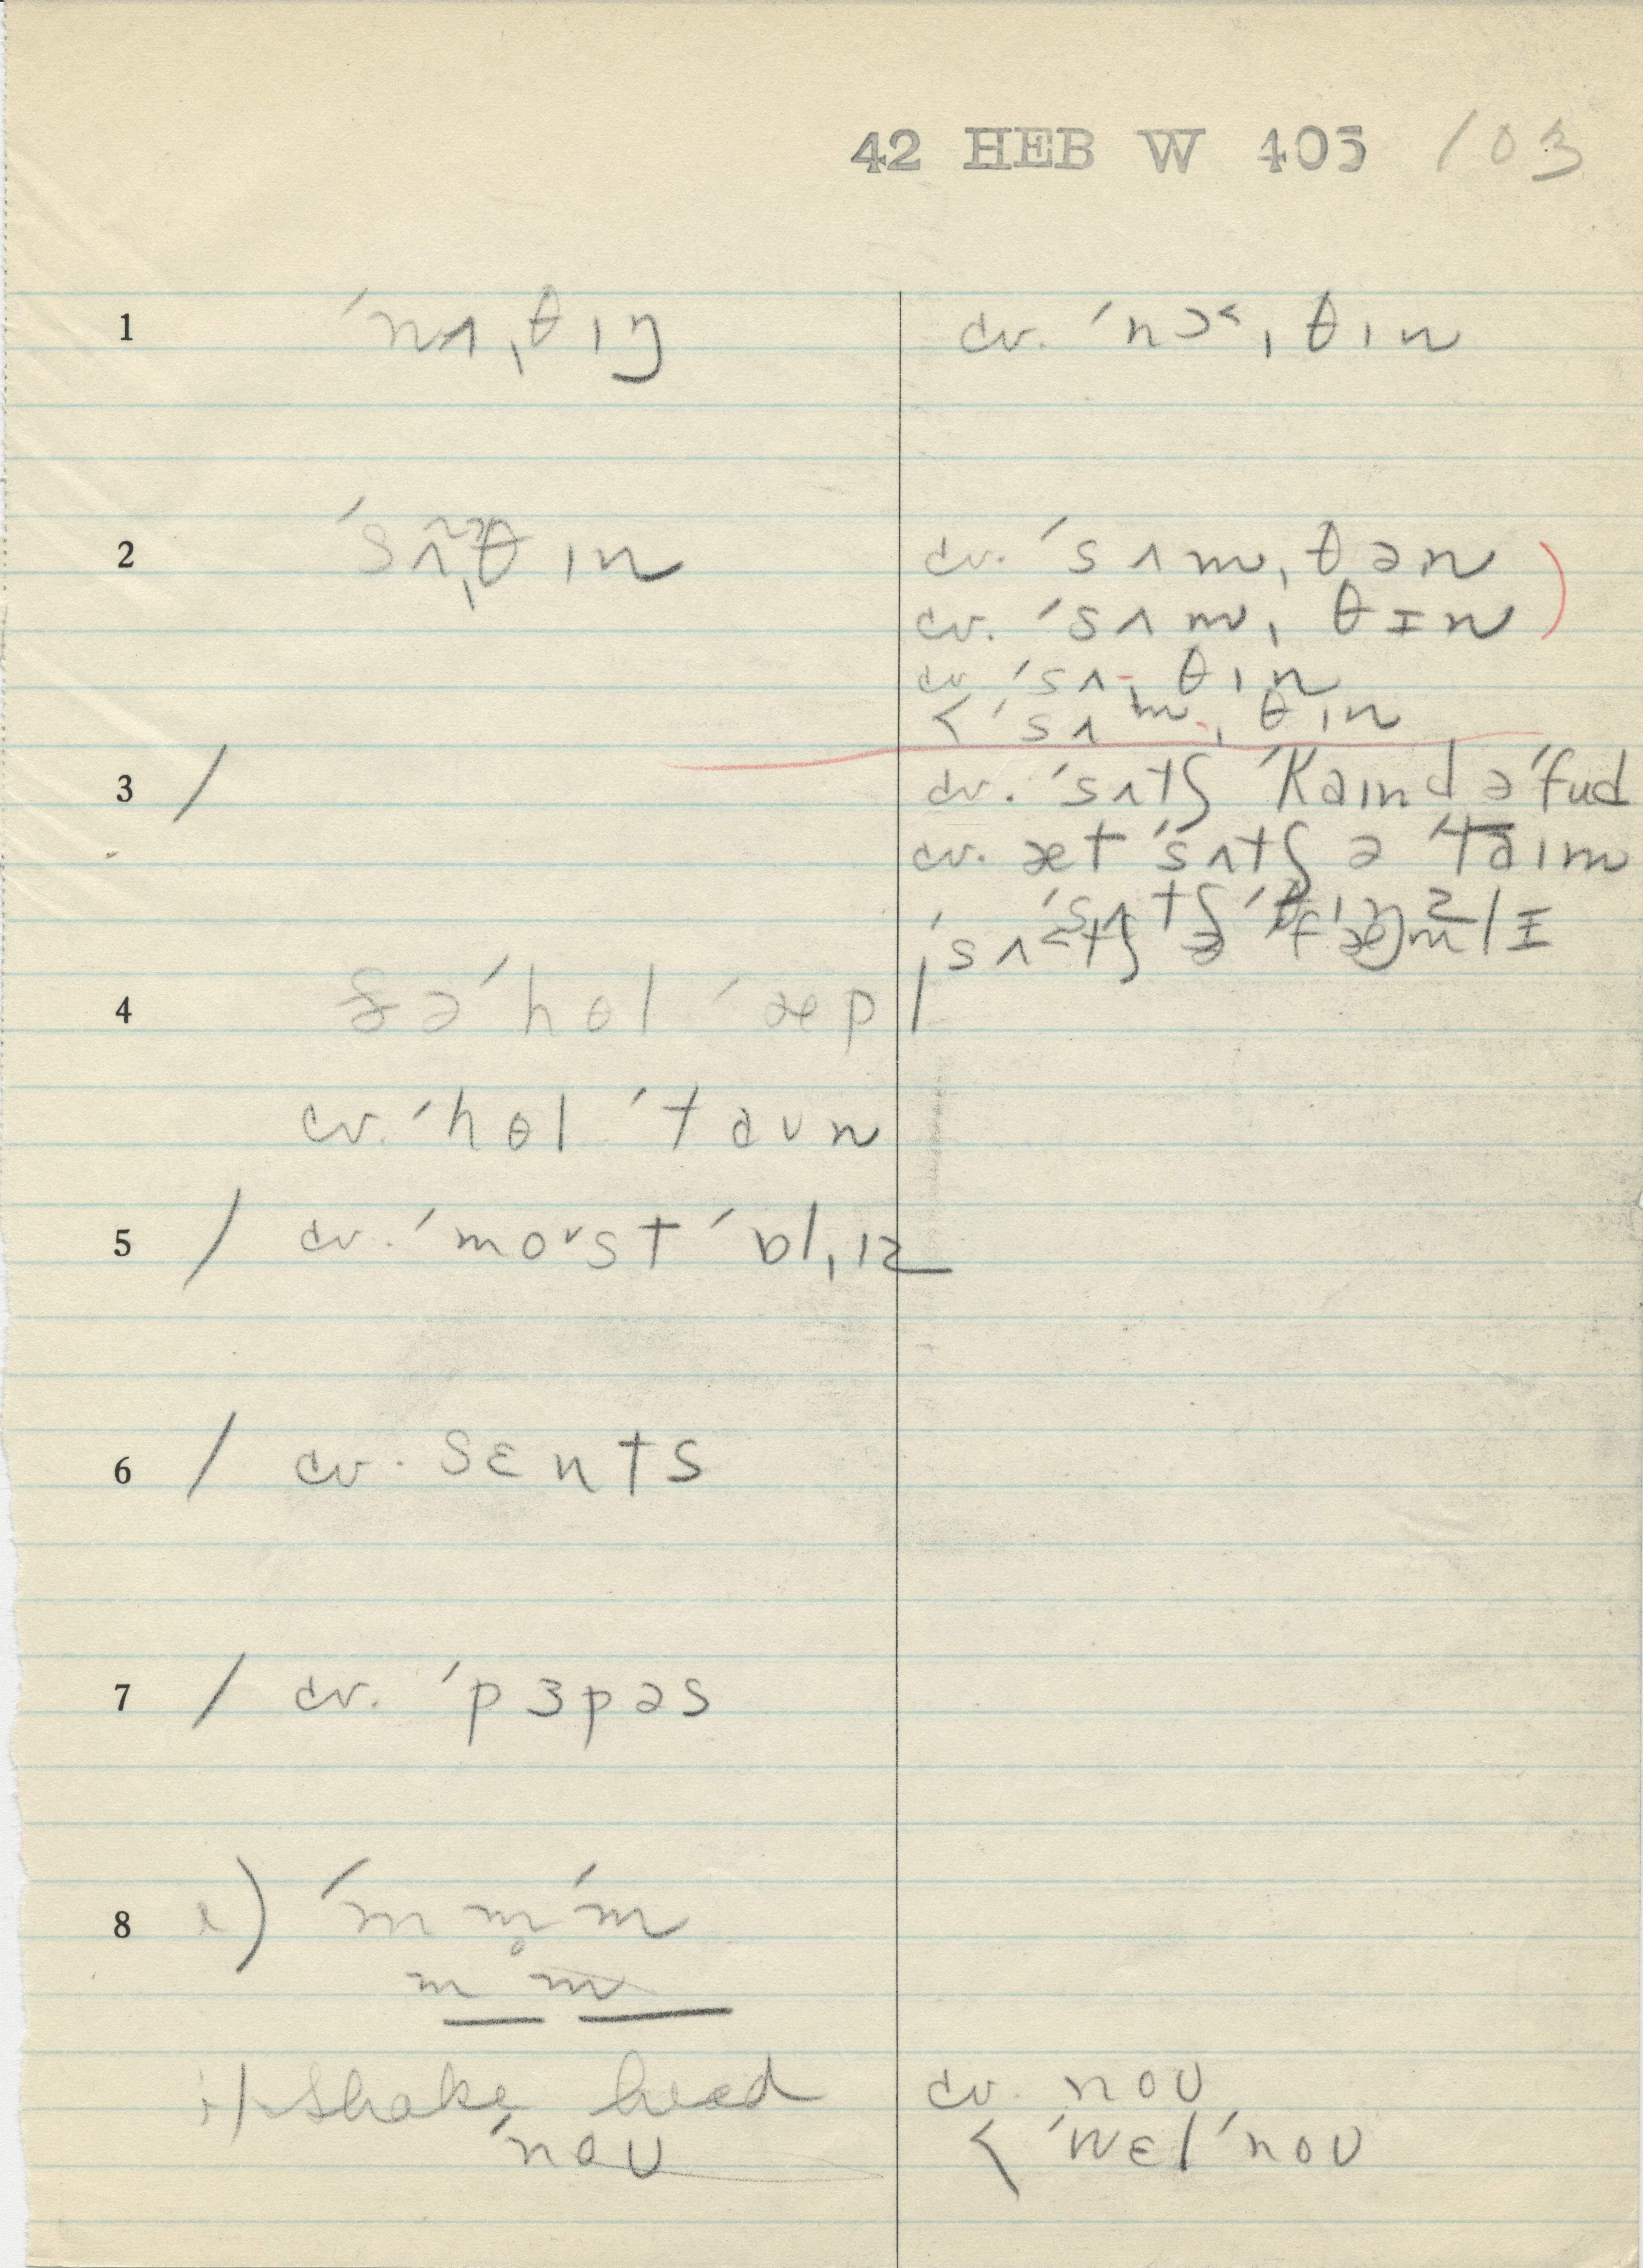 42 HEB W 405 103
1 ˈnʌˌθɪŋ cv. ˈnɔ˂ˌθɪn
2 ˌθɪn cv. ˈsʌmˌθən
cv. ˈsʌmˌθɪn
cv. ˈsʌ-ˌθɪn
< ˈsʌᵐ-ˌθɪn
3 / cv. ˈsʌtʃ ˈkaɪnd ə ˈfud
cv. æt ˈsʌtʃ ə ˈtaɪm
ˈsʌtʃ
4 ðə ˈhɵl ˈæpl
cv. ˈhɵl ˈtaʊn
5 / cv. ˈmoʊst ˈɒlˌɪz
6 / cv. sɛnts
7 / cv. ˈpɜpəs
8 ) ˈm m̥ ˈm
m m
shake head cv. noʊ
ˈnoʊ < ˈwɛl ˈnoʊ